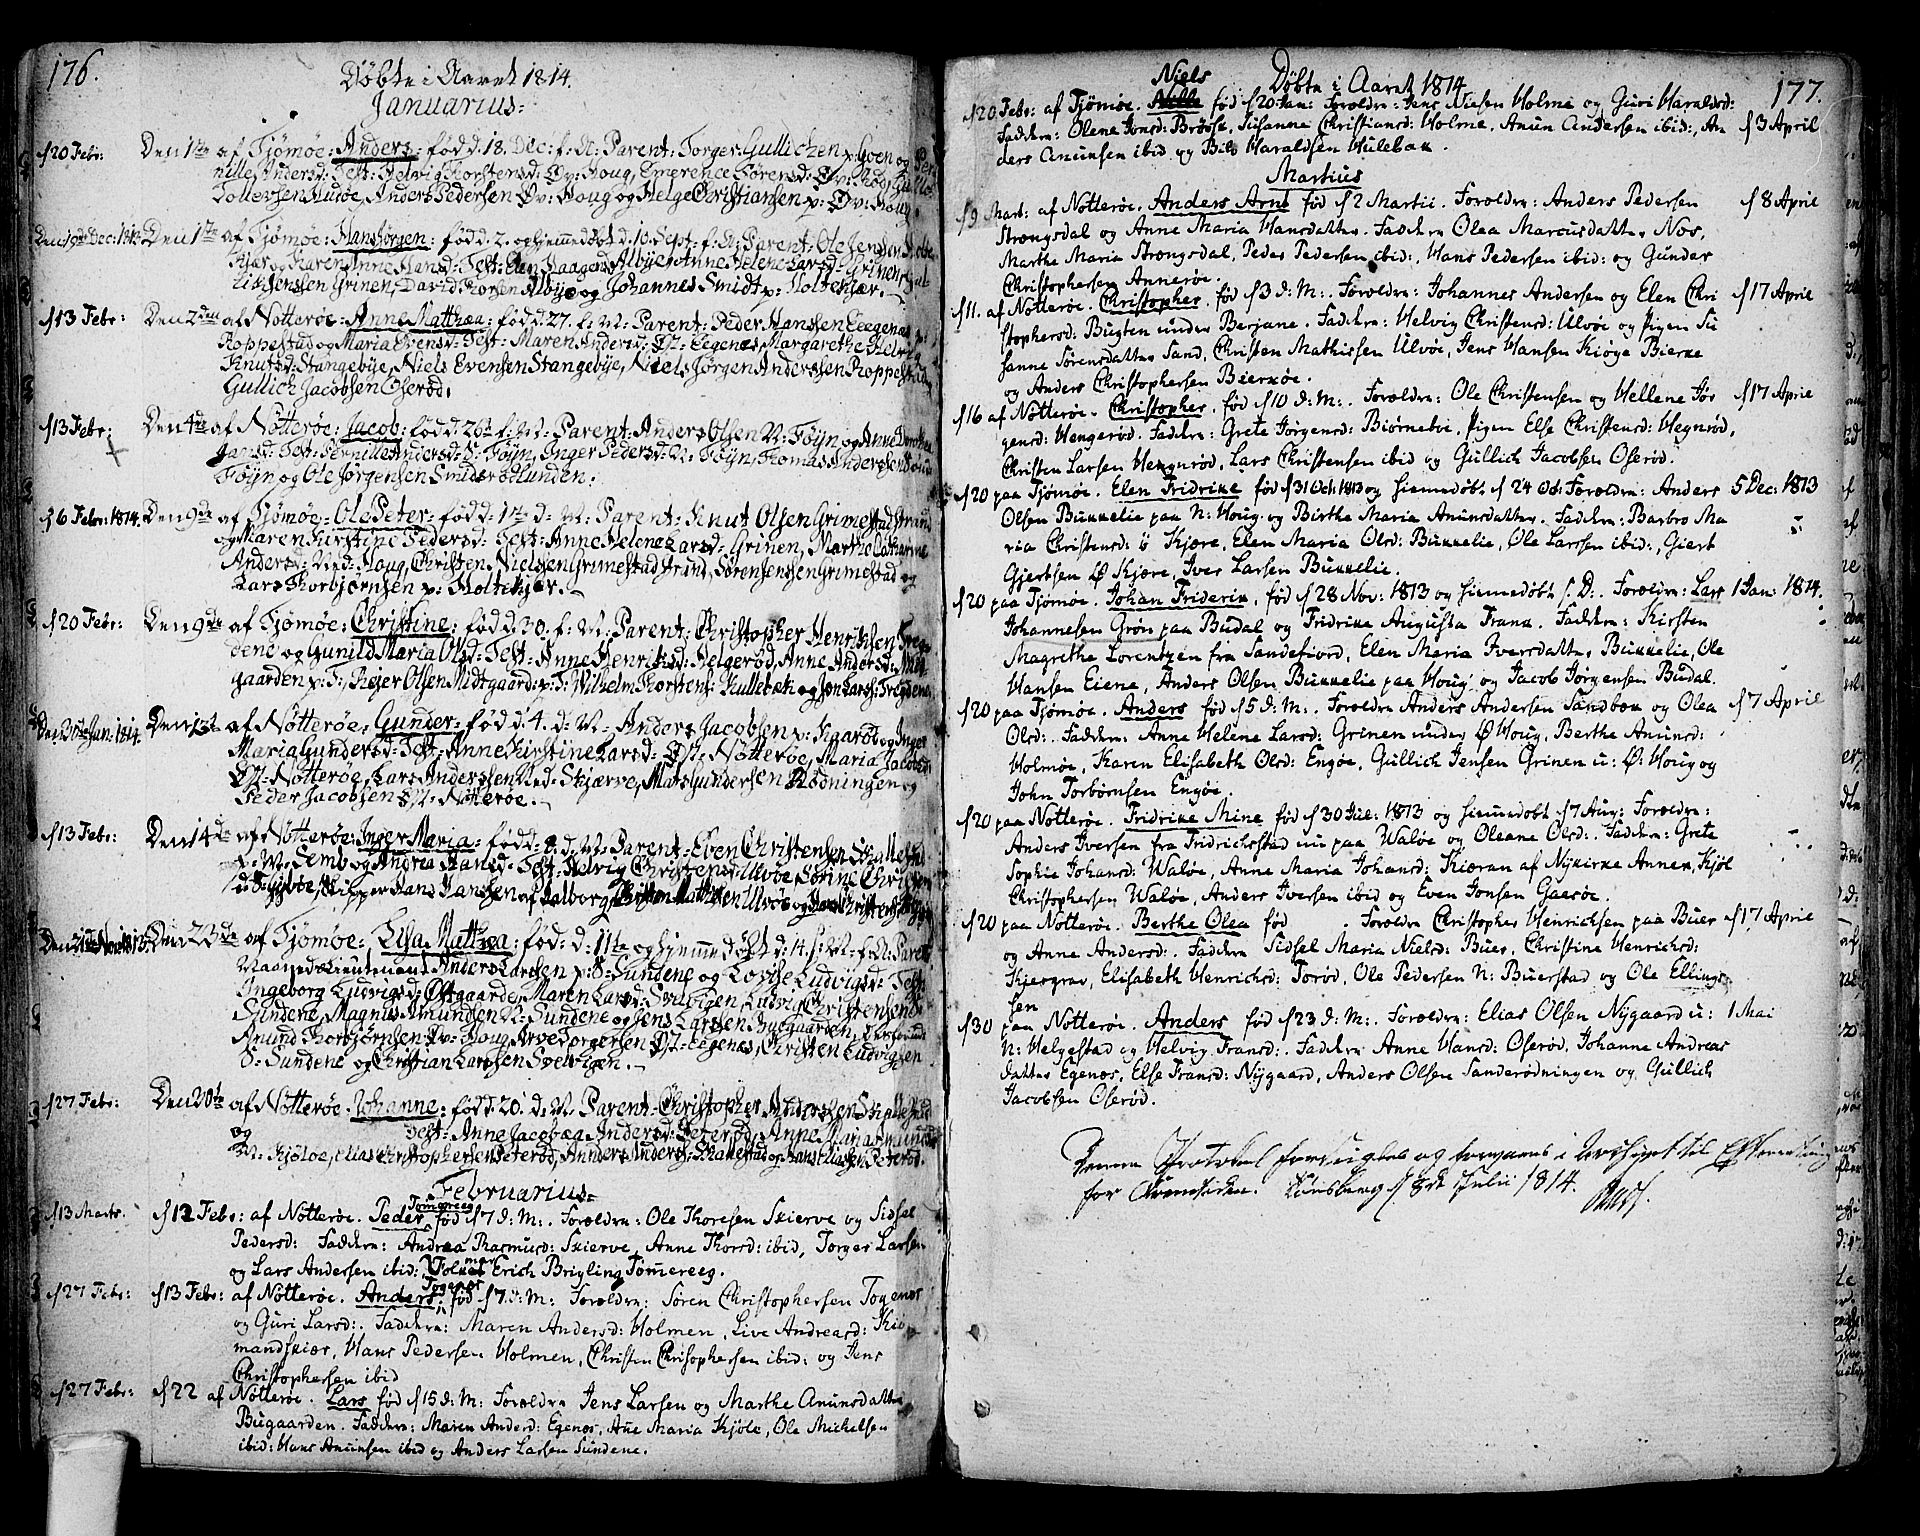 176.
Døbte i Aaret 1814.
Januarius:
d 20 Febr: Den 1te af Tjømøe: Anders: fødd. 18. Dec: f: A: Parent: Torger Gullichsen p: Goen og Per
nille Andersd: Test: Helvig Thorstensd: Øv: Houg, Emerence Sørensd: Øv: Rød,
Tollevsen Husøe, Anders Pedersen Øv: Houg og Helge Christiansen p: Øv: Houg.
Den 19de Dec: 1813. Den 1te af Tjømøe: Hans Jørgen: fødd. 2. og hjemmedøbt d. 10. Sept: f: A: Parent: Ole Jenssen Holte
kjær og Karen Anne Hansd: Test: Elen Haagensd: Albye, Anne Helene Larsd: Grinen,
Jenssen Grinen, David Thorsen Albye og Johannes Smidt p: Holtekjær.
d 13 Febr: Den 2den af Nøtterøe: Anne Mathea: fødd. 27. f: M: Parent: Peder Hanssen Eegenæs p:
Roppestad og Maria Evensd: Test: Maren Andersd: Eegenæs, Margarethe Helvig
Knutsd: Stangebye, Niels Evensen Stangebye, Niels Jørgen Anderssen Roppestad,
Gullich Jacobsen Oserød.
d 13 Febr: Den 4de af Nøtterøe: Jacob: fødd. 26de f: M: Parent: Anders Olsen N: Føyn og Anne Dorothea
Jansd: Test: Pernille Andersd: S: Føyn, Inger Pedersd: N: Føyn, Thomas Anderssen Søndre
Føyn og Ole Jørgensen Smidsrødlunden.
d 6 Febr: 1814. Den 9de af Tjømøe: Ole Peter: fødd. 1te d: M: Parent: Knut Olsen Grimestad Strand
og Maren Kirstine Pedersd: Test: Anne Helene Larsd: Grinen, Marthe Cathrine
Andersd: Ned: Houg, Christen Nielssen Grimestad Strand, Søren Jenssen Grimestad og
Lars Thorbjørnsen p: Holtekjær.
d 20 Febr: Den 9de af Tjømøe: Christine: fødd. 30. f: M: Parent: Christopher Henrichsen Treg
dene og Gunild Maria Olsd: Test: Anne Henrichsd: Helgerød, Anne Andersd: Mit
gaarden p: T:, Rejer Olsen Midtgaard: p: T: Wilhelm Thorstens: Hullebæk og Jon Larss: Tregdene.
Den 30te Jan: 1814. Den 12te af Nøtterøe: Gunder: fødd. 4. d: M: Anders Jacobsen p: Kaarød og Inger
Maria Gundersd: Test: Anne Kirstine Larsd: Øst: Nøtterøe, Maria Jacobsd:
Øst: Nøtterøe, Lars Anderssen Ned: Skjærve, Mats Gundersen Rødningen og
Peder Jacobsen Øst: Nøtterøe.
d 13 Febr: Den 14de af Nøtterøe: Inger Maria: fødd. 8. d: M: Parent: Even Christensen Skallestad
p: N: Semb og Andrea Hansd: Test: Helvig Christensd: Ulvøe, Sørine Christensd:
Skipper Hans Hanssen af Aalborg, Christen Mathissen Ulvøe og
Den 21de Nov: 1813. Den 23de af Tjømøe: Lisa Mathea: fød: d: 11te og hjemmedøbt d: 14. f: M: f: A: Parent:
Maaneds Lieutenant Anders Larssen p: S: Sundene og Lovise Ludvigsd: Test:
Ingeborg Ludvigsd: Østgaarde, Maren Larsd: Svelvigen, Ludvig Christensen S:
Sundene, Magnus Amundsen N: Sundene og Jens Larssen Buegaarden,
Anund Thorbjørnsen Øv: Houg, Arve Torgersen Øst: Eegenæs, Christen Ludvigsen
S: Sundene og Christian Larssen Svelvigen.
d 27 Febr: Den 26de af Nøtterøe: Johanne: fødd. 20. d: M: Parent: Christopher Anderssen Skallestad
og Test: Anne Jacobæa Andersd: Peterød, Anne Maria Amundsd:
N: Kjøløe, Elias Christophersen Peterød, Anders Anderss: Skallestad og Hans Eliassen Peterød.
Februarius:
d 13 Marts. d 12 Febr: af Nøtterøe. Peder Tømereeg fød d 7 d: M:. Forældre: Ole Thoresen Skierve og Sidsel
Pedersd: Faddere: Andrea Rasmusd: Skierve, Anne Thorsd: ibid, Torger Larsen
og Lars Andersen ibid: Volmer Erich Brigling Tømereeg.
d 27 Febr: d 13 Febr: af Nøtterøe. Anders fød d 7. d: M: Forældre: Søren Christophersen Togenes
og Guri Larsd:. Faddere: Maren Andersd: Holmen, Live Andreasd: Kio
mandskiær, Hans Pedersen Holmen, Christen Chrisophersen ibid: og Jens
Christophersen ibid
d 27 Febr: d 22 af Nøtterøe. Lars fød d 15 d: M: Forældre Jens Larsen og Marthe Amundsdatter
Bugaarden. Faddere: Maren Andersd: Egenæs, Ane Maria Kjøle, Ole Michelsen
ibid: Hans Amunsen ibid og Anders Larsen Sundene.
177.
Døbte i Aaret 1814
d 20 Febr: af Tjømøe. Niels fød d 20 Jan: Forældre: Jens Nielsen Holme og Guri Haraldsd:
Faddere: Olene Jonsd: Brøtsøe, Susanne Christiansd: Holme, Anun Andersen ibid:, An d 3 April
ders Anunsen ibid og Bils Haraldsen Hulebak.
Martius
d 9 Mart: af Nøtterøe. Anders Arnt fød d 2 Martii. Forældre: Anders Pedersen d 8 April
Strængsdal og Anne Maria Hansdatter. Faddere Olea Marcusdatter Næs,
Marthe Maria Strængsdal, Peder Pedersen ibid:, Hans Pedersen ibid: og Gunder
Christophersen Annerøe.
d 11. af Nøtterøe. Christopher fød d 3 d: M:. Forældre: Johannes Andersen og Elen Chri d 17 April
stophersd: Bugten under Berjane. Faddere: Helvig Christensd: Ulvøe og Pigen Su
sanne Sørensdatter Sand, Christen Mathissen Ulvøe, Jens Hansen Kiøge Bierke
og Anders Christophersen Bierkøe.
d 16 af Nøtterøe. Christopher, fød d 10 d: M:. Forældre: Ole Christensen og Hellene Jør d 17 April
gensd: Hengerød. Faddere: Grete Jørgensd: Biørnebo, Pigen Else Christensd: Hegnrød,
Christen Larsen Hengnrød, Lars Christensen ibid og Gullich Jacobsen Oserød.
d 20 paa Tjømøe. Elen Fridrike fød d 31 Oct: 1813 og hiemmedøbt d 24 Oct: Forældre: Anders 5 Dec: 1813
Olsen Bukkelie paa N: Houg og Birthe Maria Anunsdatter. Faddere: Barbro Ma
ria Christensd: Ø Kjære, Elen Maria Olsd: Bukkelie, Ole Larssen ibid:, Giert
Gjertsen Ø Kjære, Iver Larsen Bukkelie.
d 20 paa Tjømøe. Johan Friderik, fød d 28 Nov: 1813 og hiemmedøbt s. D:. Forældre: Lars 1 Jan: 1814.
Johannesen Grøn paa Budal og Fridrike Augusta Frank. Faddere: Kirsten
Magrethe Lorentzen fra Sandefiord, Elen Maria Iversdatter Bukkelie, Ole
Hansen Eiene, Anders Olsen Bukkelie paa Houg og Jacob Jørgensen Budal.
d 20 paa Tjømøe. Anders fød d 5 d: M:. Forældre Anders Andersen Sandbæk og Olea d 7 April
Olsd:. Faddere: Anne Helene Larsd: Grinen under Ø Houg, Berthe Anunsd:
Holmøe, Karen Elisabeth Olsd: Engøe, Gullich Jensen Grinen u: Ø: Houg og
John Torbørnsen Engøe.
d 20 paa Nøtterøe. Fridrike Mine fød d 30 Jul: 1813 og hiemmedøbt d 7 Aug: Forældre:
Anders Iversen fra Fridrichsstad nu paa Waløe og Oleane Olsd: Faddere: Grete
Sophie Johansd: Waløe, Anne Maria Johansd: Kieran af Nykirke Annex, Kjøl
Christophersen Waløe, Anders Iversen ibid og Even Jonsen Gaasøe.
d 20 paa Nøtterøe. Berthe Olea fød . Forældre Christopher Henrichsen paa Buer d 17 April
og Anne Andersd: Faddere Sidsel Maria Nielsd: Buer, Christine Henrichsd:
Kjergrav, Elisabeth Henrichsd: Torød, Ole Pedersen N: Buerstad og Ole Ellings
sen
d 30 paa Nøtterøe. Anders fød d 23 d: M:. Forældre: Elias Olsen Nygaard u: 1 Mai
N: Helgestad og Helvig Fransd:. Faddere Anne Hansd: Oserød, Johanne Andreas
datter Egenæs, Else Fransd: Nygaard, Anders Olsen Sanderødningen og Gullich
Jacobsen Oserød.
Denne Protokol forsegles og henvises i Archivet til Efterretning
for Eftertiden. Tønsberg d 8de Julii 1814.